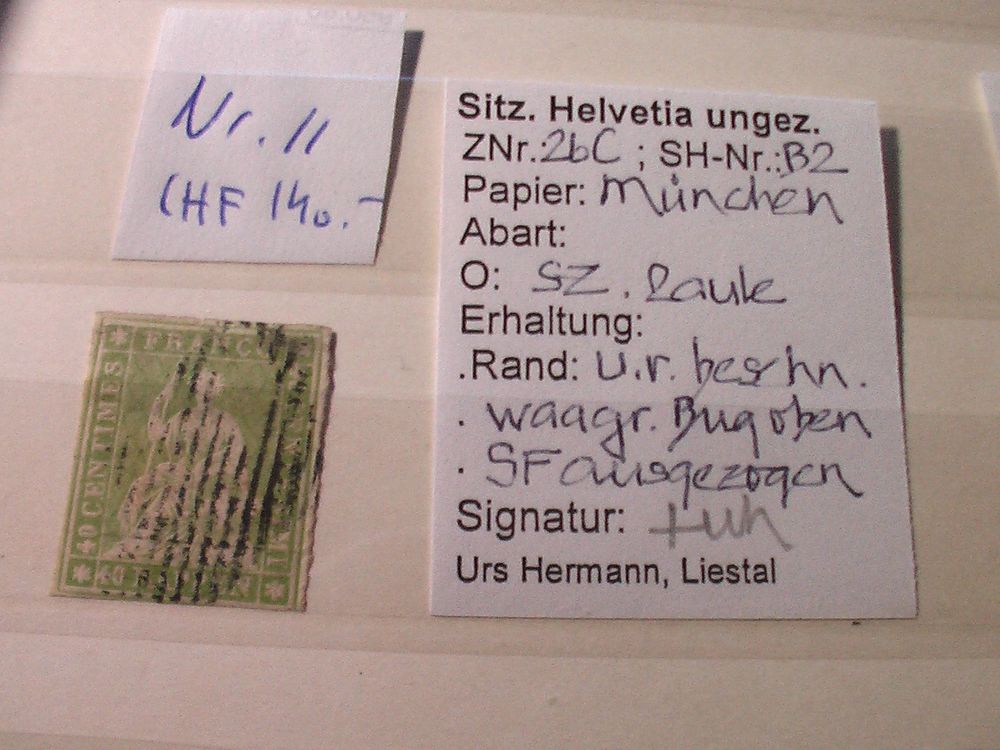 Nr. 11
CHF 140.-
Sitz. Helvetia ungez.
ZNr.:26C ; SH-Nr.:B2
Papier: München
Abart:
O: SZ. Raute
Erhaltung:
.Rand: u.r. beschn.
. waagr. Bug oben
. SF ausgezogen
Signatur: +uh
Urs Hermann, Liestal
FRANCO
40 CENTIMES
40 RAPPEN